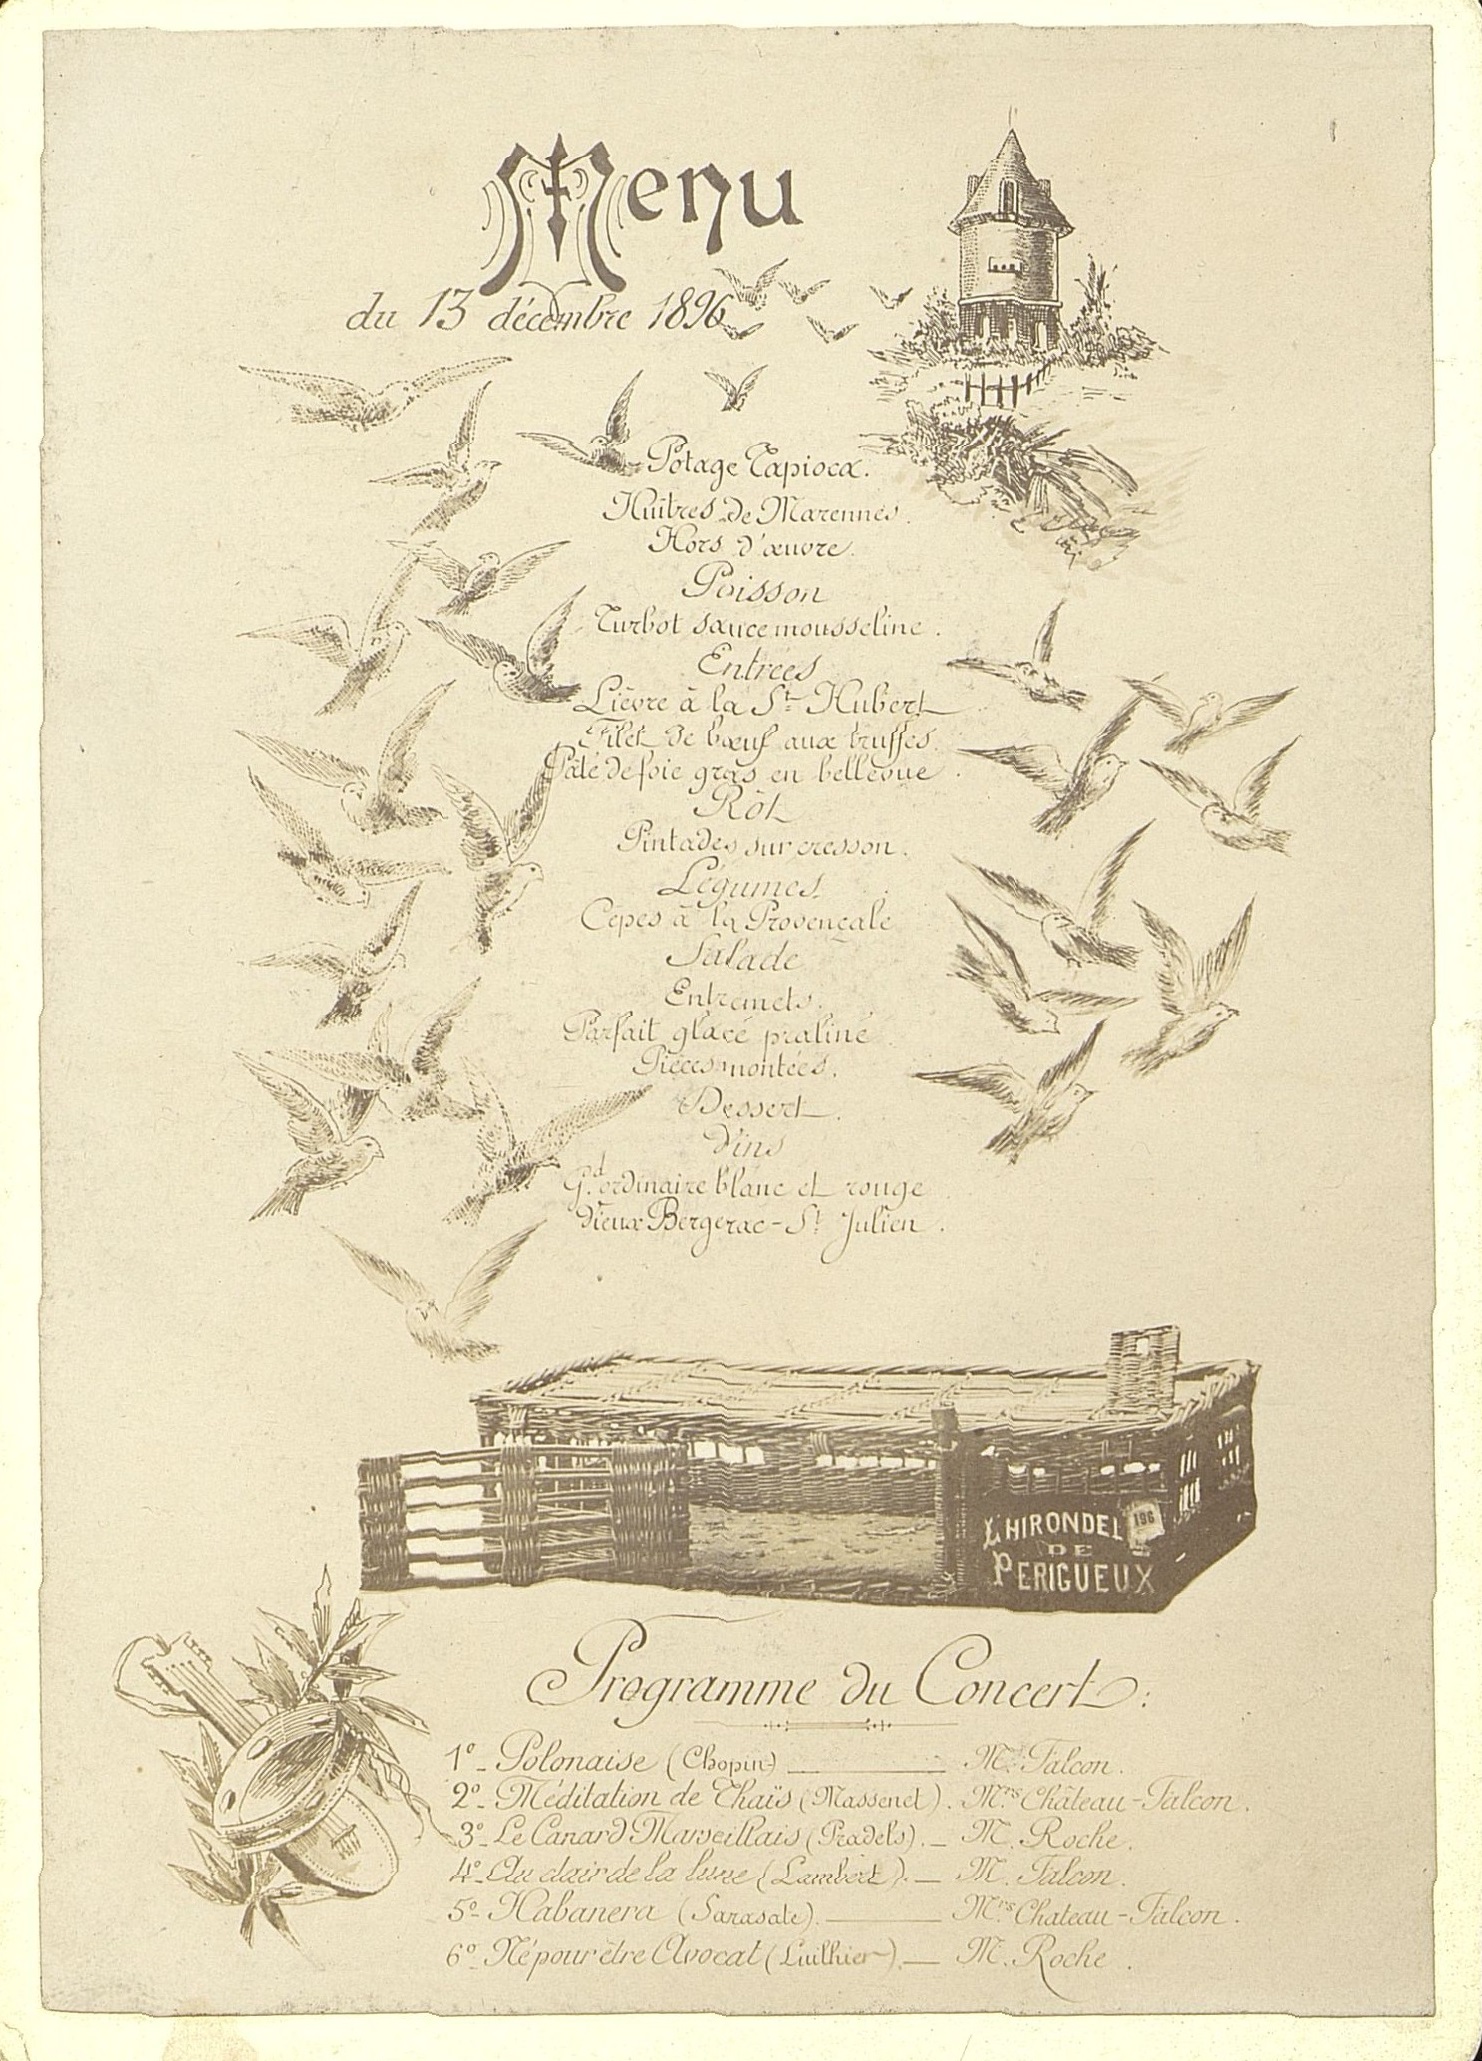 Menu
du 13 décembre 1896
Potage Tapioca.
Huîtres de Marennes.
Hors d'œuvre.
Poisson
Turbot sauce mousseline.
Entrées
Lièvre à la St Hubert
Filet de bœuf aux truffes.
Pâté de foie gras en bellevue.
Rôt
Pintades sur cresson.
Légumes.
Cèpes à la Provençale
Salade
Entremets.
Parfait glacé praliné
Pièces montées.
Dessert.
Vins
Gd ordinaire blanc et rouge
Vieux Bergerac - St Julien.
L'HIRONDEL 196
DE
PERIGUEUX
Programme du Concert:
1º - Polonaise (Chopin) — M. Falcon.
2º - Méditation de Thaïs (Massenet). Mrs Château - Falcon.
3º - Le Canard Marseillais (Pradels). — M. Roche.
4º - Au clair de la lune (Lambert). — M. Falcon.
5º - Habanera (Sarasate). — Mrs Chateau - Falcon.
6º - Né pour être Avocat (Luilhier). — M. Roche.